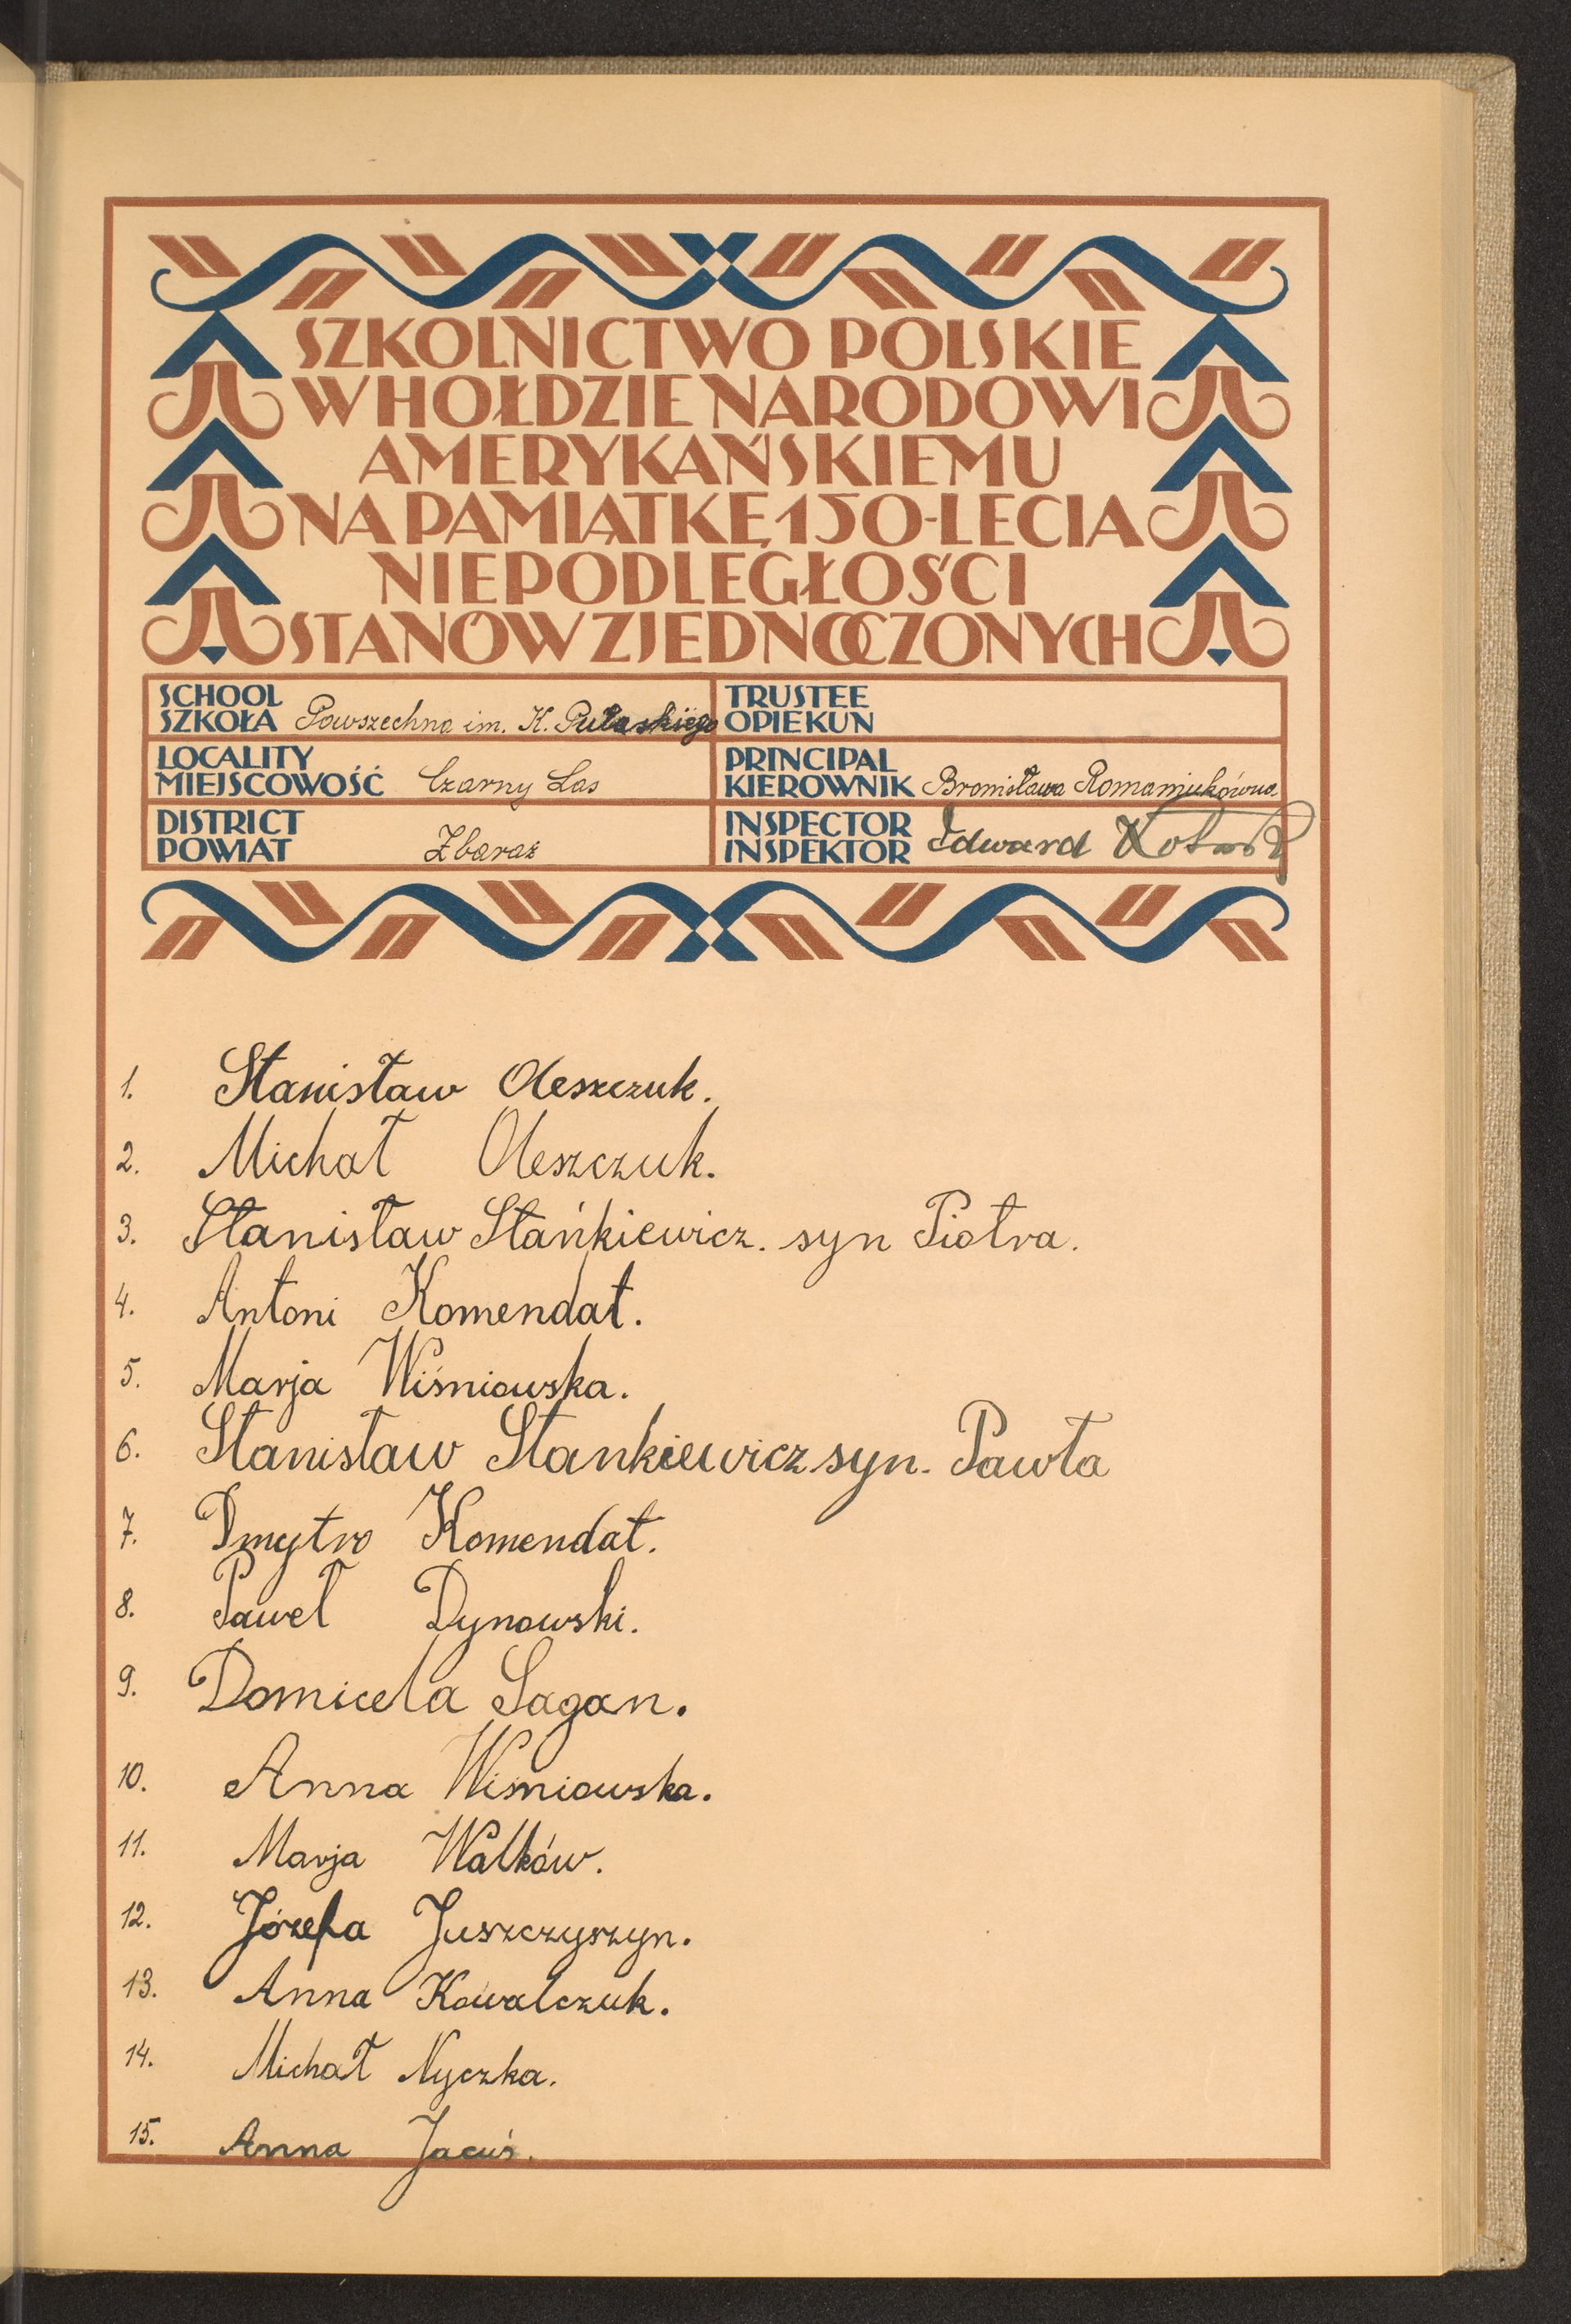 SZKOLNICTWO POLSKIE
W HOŁDZIE NARODOWI
AMERYKAŃSKIEMU
NA PAMIĄTKĘ 150-LECIA
NIEPODLEGŁOŚCI
STANÓW ZJEDNOCZONYCH
SCHOOL
SZKOŁA Powszechna im. K. Pułaskiego
TRUSTEE
OPIEKUN
LOCALITY
MIEJSCOWOŚĆ Czarny Las
PRINCIPAL
KIEROWNIK Bronisława Romaniukówna
DISTRICT
POWIAT Zbaraż
INSPECTOR
INSPEKTOR Edward
1. Stanisław Oleszczuk.
2. Michał Oleszczuk.
3. Stanisław Stańkiewicz. syn Piotra.
4. Antoni Komendat.
5. Marja Wiśniowska.
6. Stanisław Stankiewicz syn. Pawła
7. Dmytro Komendat.
8. Paweł Dynowski.
9. Domicela Sagan.
10. Anna Wiśniowska.
11. Marja Walków.
12. Józefa Juszczyszyn.
13. Anna Kowalczuk.
14. Michał Nyczka.
15. Anna Jacuś.